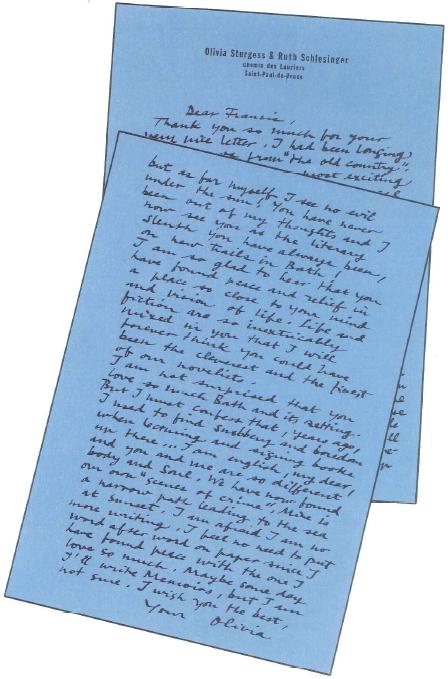 Olivia Sturgess & Ruth Schlesinger
Chemin des Lauriers
Saint-Paul-de-Vence
Dear Francis,
Thank you so much for your
very nice letter. I had been longing
from "the old country",
most exciting
but as for myself, I see no evil
under the sun! You have never
been out of my thoughts and I
now see you as the literary
sleuth you have always been,
on new trails in Bath!
I am so glad to hear that you
have found peace and relief in
a place so close to your mind
and vision of life. Life and
fiction are so inextricably
mixed in you that I will
forever think you could have
been the cleverest and the finest
of our novelists.
I am not surprised that you
love so much Bath and its setting.
But I must confess that, years ago,
I used to find snobbery and boredom
when coming and signing books
up there... I am english, my dear,
and you and me are so different
body and soul. We have now found
our own "scenes of crime". Mine is
a narrow path leading to the sea
at sunset. I am afraid I am no
more writing. I feel no need to put
word after word on paper since I
have found peace with the one I
love so much. Maybe some day
I'll write Memoirs, but I am
not sure. I wish you the best,
Your Olivia